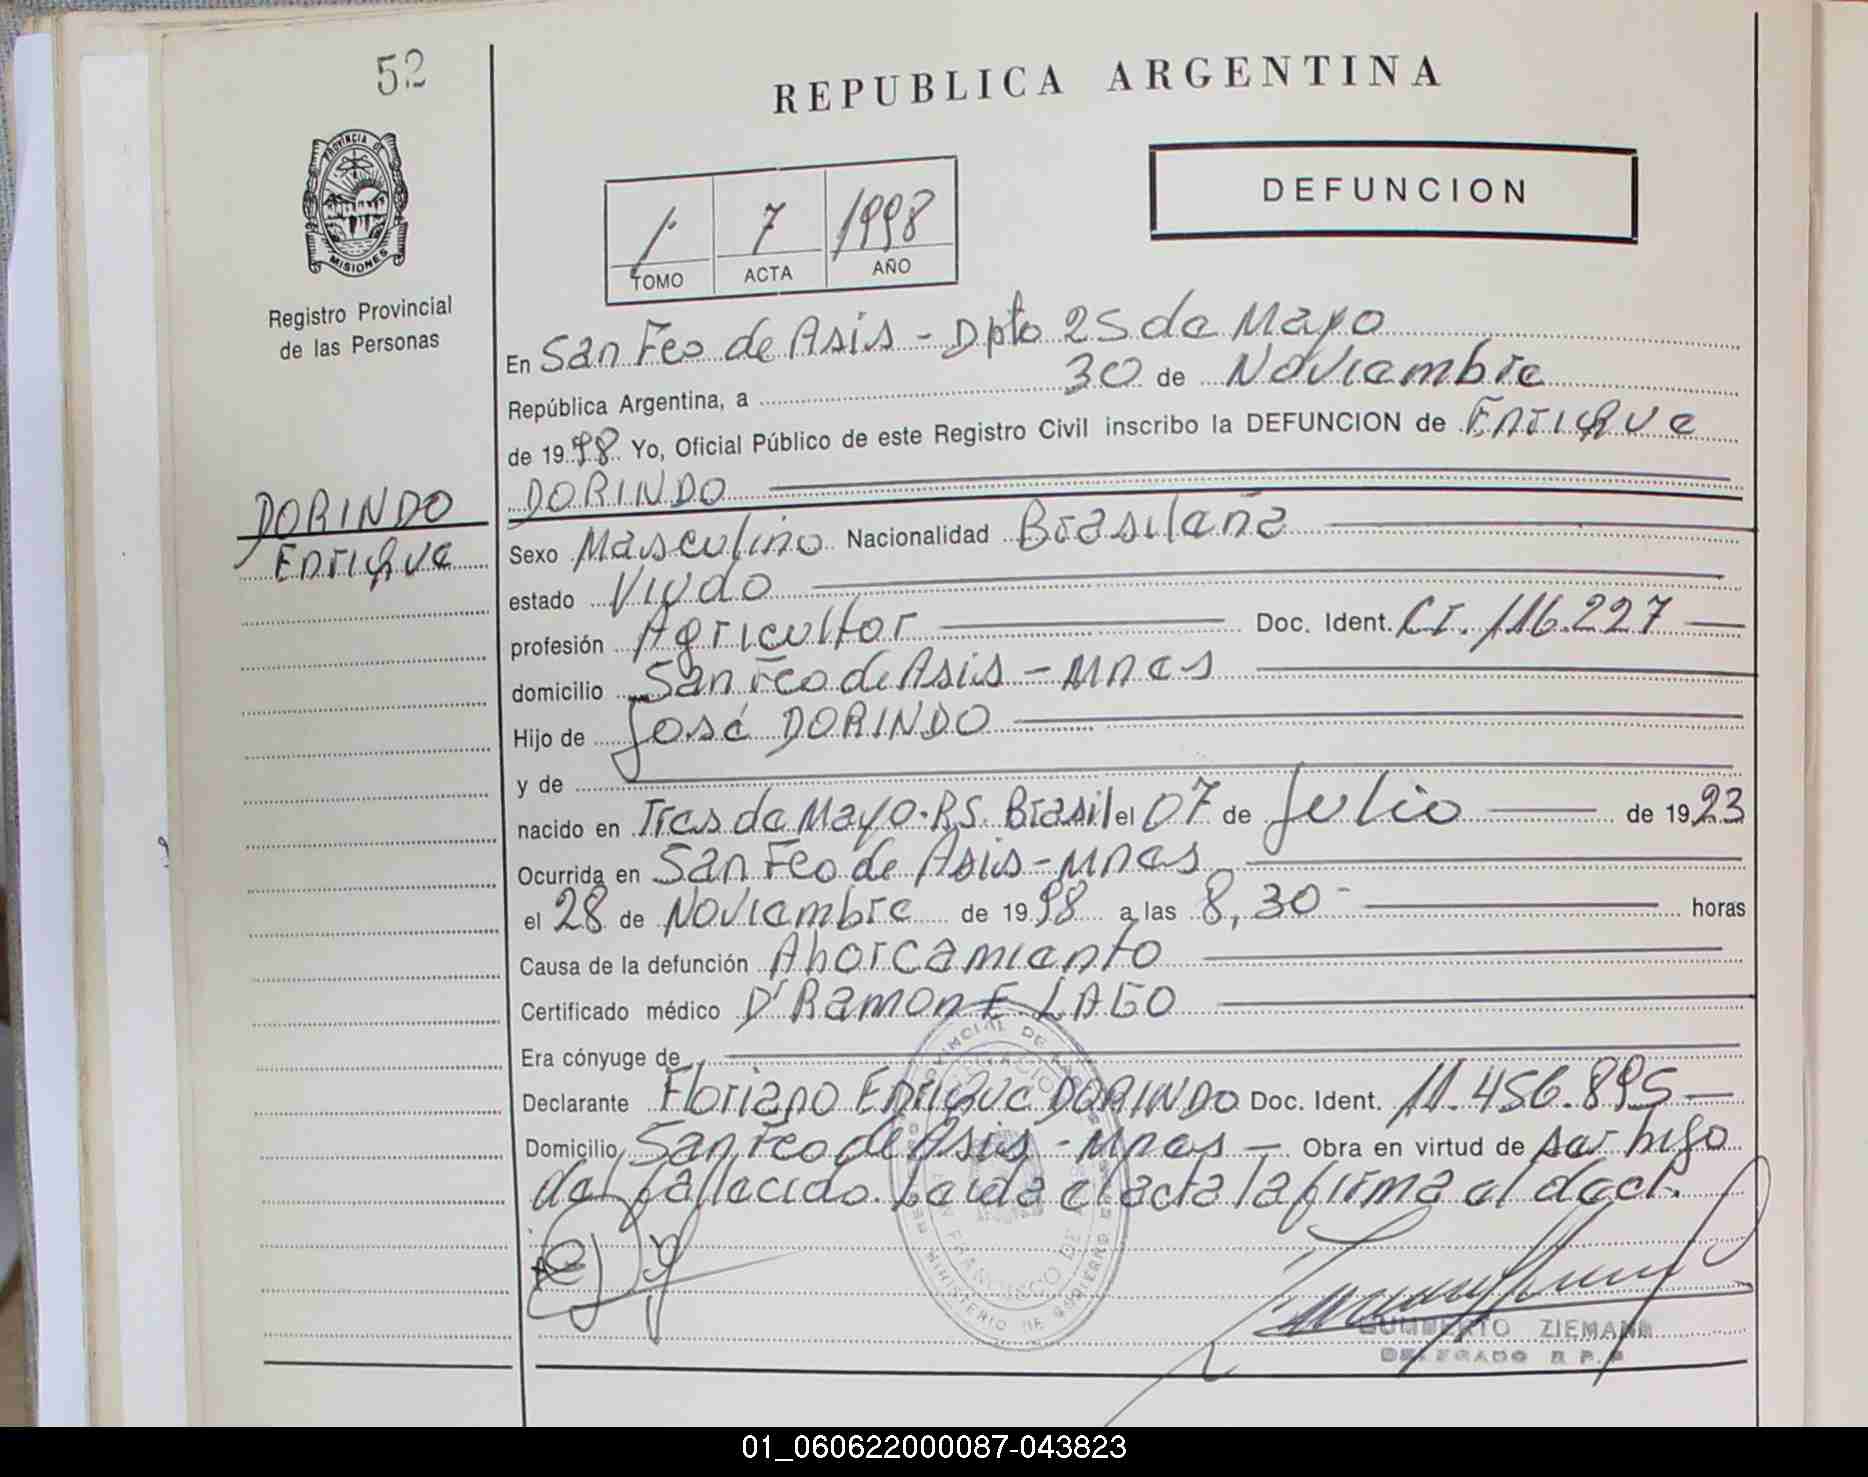 52
REPUBLICA ARGENTINA
PROVINCIA DE
MISIONES
Registro Provincial
de las Personas
DEFUNCION
1 7 1998
TOMO ACTA AÑO
En San Fco de Asis - Dpto 25 de Mayo
República Argentina, a 30 de Noviembre
de 1998 Yo, Oficial Público de este Registro Civil inscribo la DEFUNCION de Enrique
DORINDO
DORINDO
Enrique
Sexo Masculino Nacionalidad Brasileña
estado Viudo
profesión Agricultor Doc. Ident. CI. 116.227
domicilio San Fco de Asis - Mnes
Hijo de José DORINDO
y de
nacido en Tres de Mayo. RS. Brasil el 07 de Julio de 1923
Ocurrida en San Fco de Asis - Mnes
el 28 de Noviembre de 1998 a las 8,30 horas
Causa de la defunción Ahorcamiento
Certificado médico Dr Ramon E. LAGO
Era cónyuge de
Declarante Floriano Enrique DORINDO Doc. Ident. 11.456.895
Domicilio San Fco de Asis - Mnes - Obra en virtud de ser hijo
del fallecido. Leida el acta la firma el decl.
MINISTERIO DE GOBIERNO
HUMBERTO ZIEMANN
DELEGADO R.P.P
01_060622000087-043823